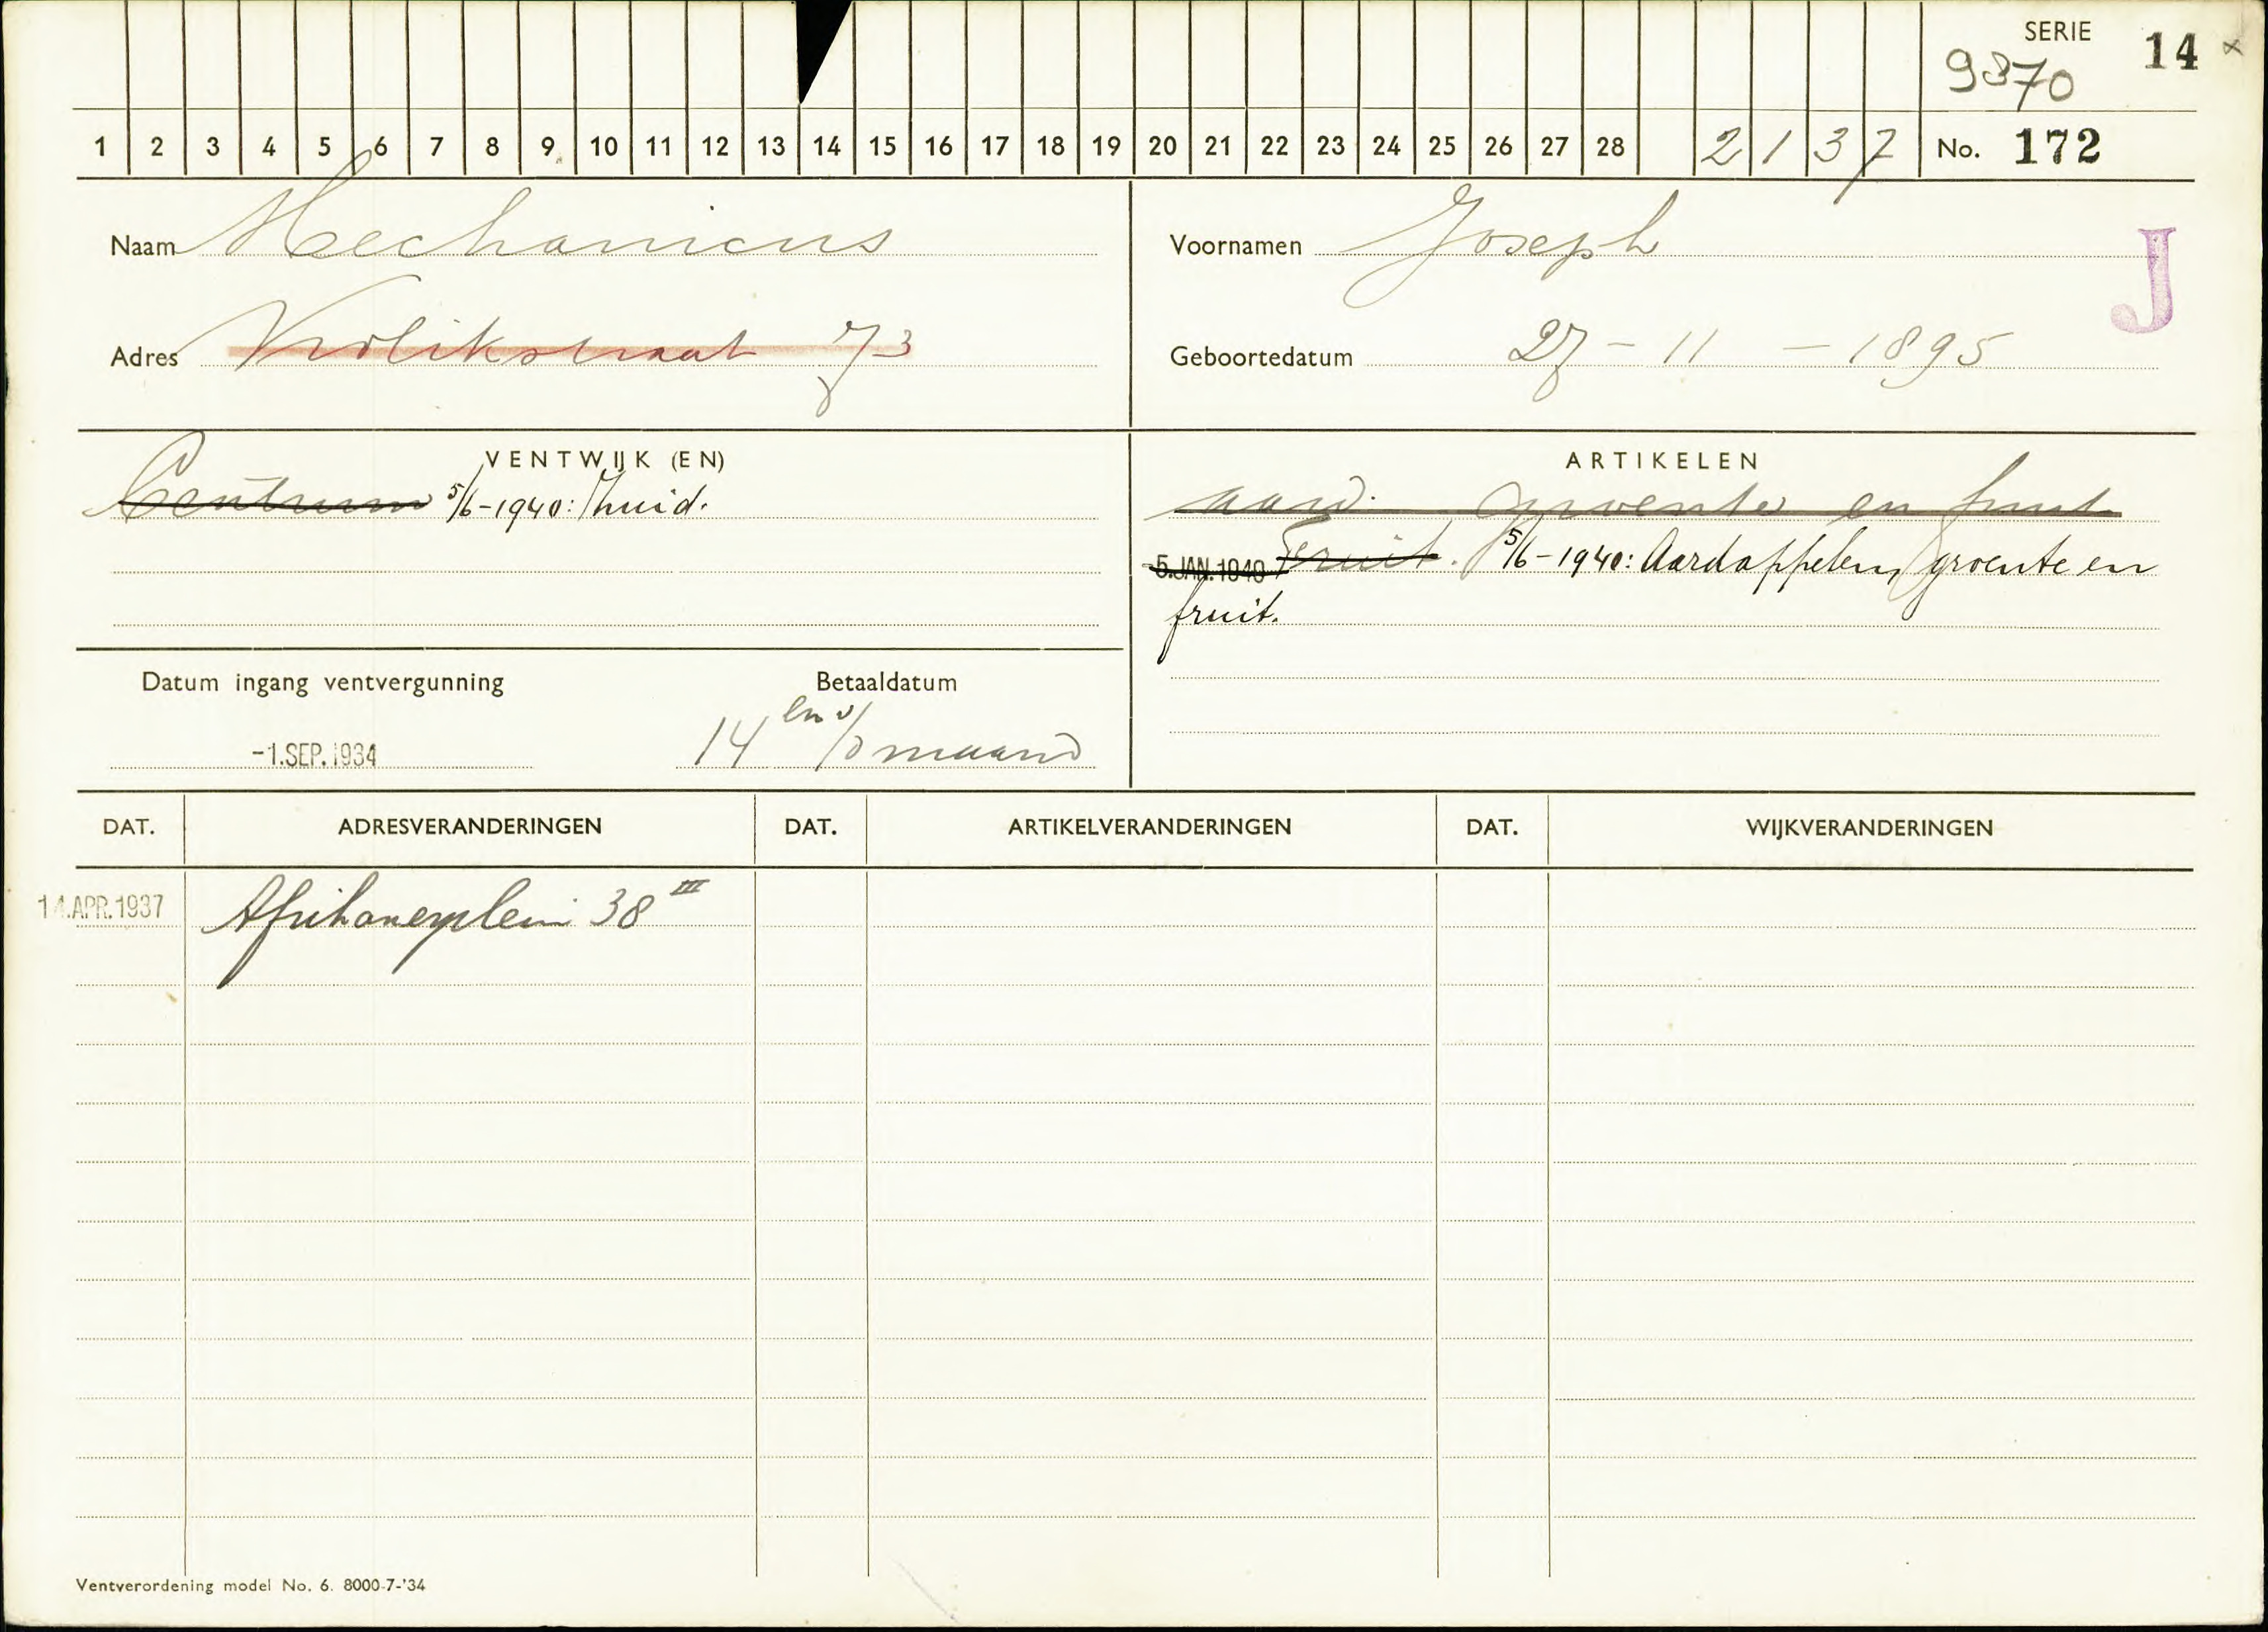 SERIE 14 x
9370
1 2 3 4 5 6 7 8 9 10 11 12 13 14 15 16 17 18 19 20 21 22 23 24 25 26 27 28 2 1 3 7 No. 172
Naam Mechanicus
Voornamen Joseph
J
Adres Vrolikstraat 73
Geboortedatum 27-11-1895
VENTWIJK (EN)
Centrum 5/6-1940: Zuid.
ARTIKELEN
aard. groente en fruit
-5.JAN.1940 Fruit. 5/6-1940: Aardappelen, groente en
fruit.
Datum ingang ventvergunning
-1.SEP.1934
Betaaldatum
14en v/d maand
DAT. ADRESVERANDERINGEN DAT. ARTIKELVERANDERINGEN DAT. WIJKVERANDERINGEN
14.APR.1937 Afrikanerplein 38 III
Ventverordening model No. 6. 8000-7-'34